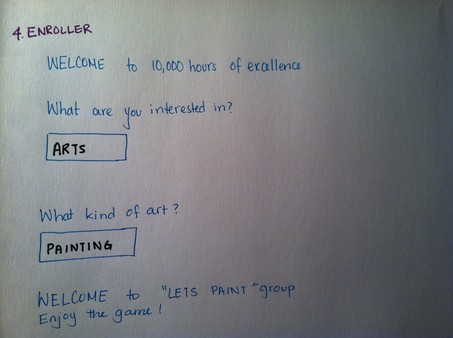 4. ENROLLER
WELCOME to 10,000 hours of excellence
What are you interested in?
ARTS
What kind of art?
PAINTING
WELCOME to "LETS PAINT" group
Enjoy the game!